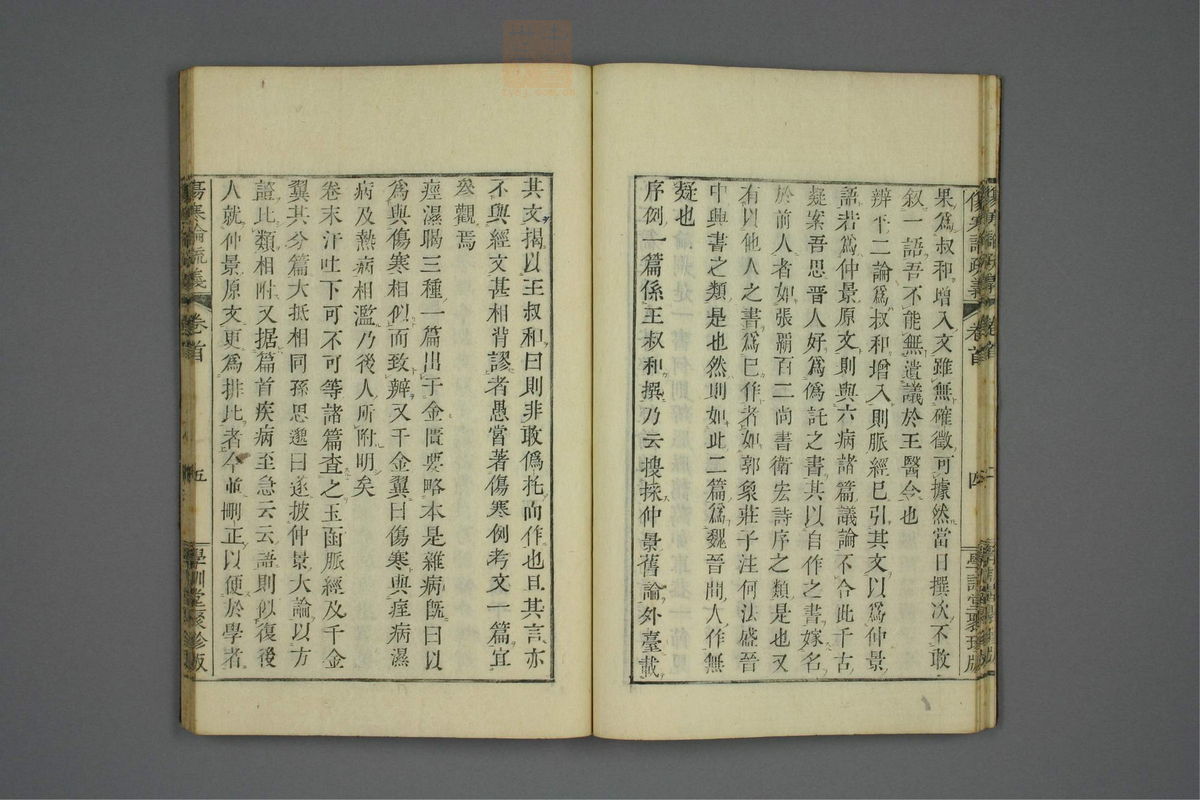 傷寒論疏義
卷首
四
學訓堂聚珍版
果爲叔和增入文雖無確徵可據然當日撰次不敢
叙一語吾不能無遺議於王醫令也
辨平二論爲叔和增入則脈經已引其文以爲仲景
語若爲仲景原文則與六病諸篇議論不合此千古
疑案吾思晉人好爲僞託之書其以自作之書嫁名
於前人者如張霸百二尚書衛宏詩序之類是也又
有以他人之書爲已作者如郭象莊子注何法盛晉
中興書之類是也然則如此二篇爲魏晉間人作無
疑也
序例一篇係王叔和撰乃云搜採仲景舊論外臺載
其文揭以王叔和曰則非敢僞托而作也且其言亦
不與經文甚相背謬者愚嘗著傷寒例考文一篇宜
參觀焉
痙濕暍三種一篇出于金匱要略本是雜病既曰以
爲與傷寒相似而致辨又千金翼曰傷寒與痓病濕
病及熱病相濫乃後人所附明矣
卷末汗吐下可不可等諸篇查之玉函脈經及千金
翼其分篇大抵相同孫思邈曰遂披仲景大論以方
證比類相附又据篇首疾病至急云云語則似復後
人就仲景原文更爲排比者今並刪正以便於學者
傷寒論疏義
卷首
五
學訓堂聚珍版